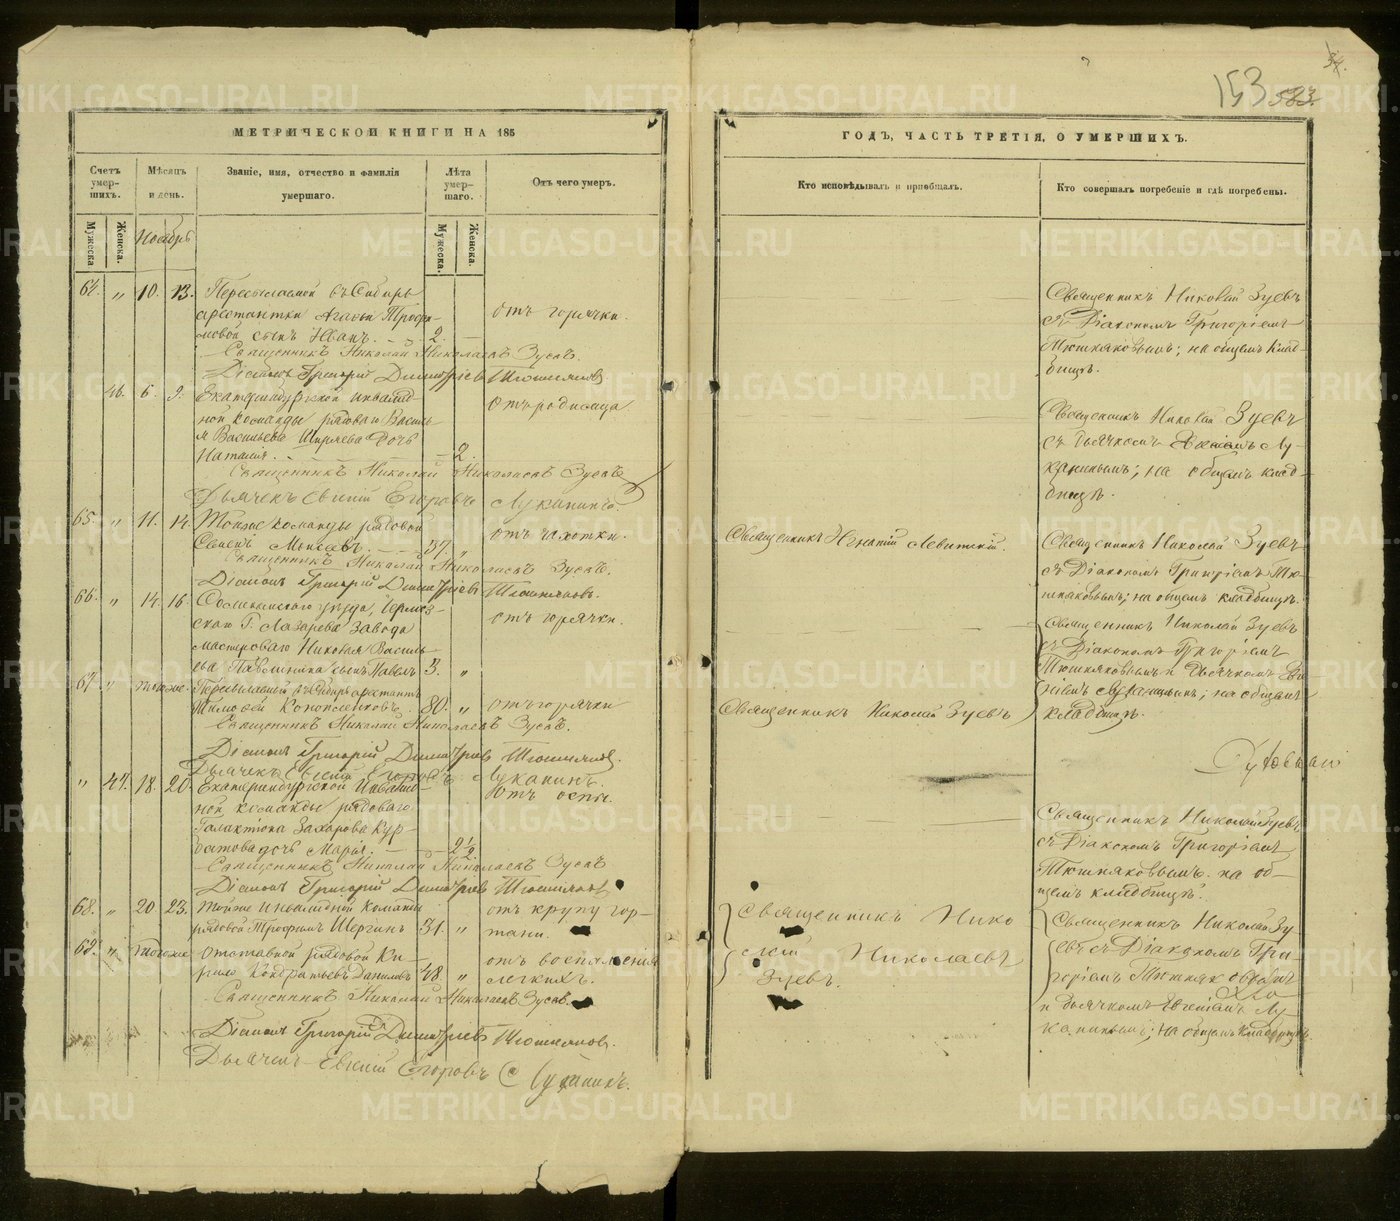 153 583.
МЕТРИЧЕСКОЙ КНИГИ НА 185
ГОДЪ, ЧАСТЬ ТРЕТІЯ, О УМЕРШИХЪ.
Счетъ умер-шихъ.
Мужеска
Женска.
Мѣсяцъ и день.
Званіе, имя, отчество и фамилія умершаго.
Лѣта умер-шаго.
Мужеска.
Женска.
Отъ чего умеръ.
Кто исповѣдывалъ и пріобщалъ.
Кто совершалъ погребеніе и гдѣ погребены.
Ноябрь
64. " 10. 13. Пересылаемой въ Сибирь
арестантки Агафьи Трофи-
мовой сынъ Иванъ. 2. отъ горячки.
Священникъ Николай Николаевъ Зуевъ.
Діаконъ Григорій Димитріевъ Тюшняковъ
Священникъ Николай Зуевъ
съ Діакономъ Григоріемъ
Тюшняковымъ; на общемъ клад-
бищѣ.
46. 6. 9. Екатеринбургской инвалид-
ной команды рядоваго Василь-
я Васильева Ширяева дочь
Наталія. 2. отъ родимца
Священникъ Николай Николаевъ Зуевъ
Дьячекъ Евгеній Егоровъ Луканинъ.
Священникъ Николай Зуевъ
съ дьячкомъ Евгеніемъ Лу-
канинымъ; на общемъ клад-
бищѣ.
65. " 11. 14. Тойже команды рядовой
Моисеевъ. 37. " отъ чахотки.
Священникъ Николай Николаевъ Зуевъ.
Діаконъ Григорій Димитріевъ Тюшняковъ.
Священникъ Игнатій Левитскій.
Священникъ Николай Зуевъ
съ Діакономъ Григоріемъ Тю-
шняковымъ; на общемъ кладбищѣ.
66. " 14. 16. Соликамскаго уѣзда,
Г. Лазарева завода
мастероваго Николая Василь-
ева сынъ Павелъ 3. " отъ горячки.
67. " тогоже. Пересылаемый въ Сибирь арестантъ
Тимофей Коноплевковъ. 80. " отъ горячки
Священникъ Николай Николаевъ Зуевъ.
Діаконъ Григорій Димитріевъ Тюшняковъ.
Дьячекъ Евгеній Егоровъ Луканинъ.
Священникъ Николай Зуевъ
Священникъ Николай Зуевъ
съ Діакономъ Григоріемъ
Тюшняковымъ и дьячкомъ Ев-
геніемъ Луканинымъ; на общемъ
кладбищѣ.
" 47. 18. 20. Екатеринбургской Инвалид-
ной команды рядоваго
Галактіона Захарова Кур-
батова дочь Марія. 2½ Отъ оспы.
Священникъ Николай Николаевъ Зуевъ
Діаконъ Григорій Димитріевъ Тюшняковъ
Священникъ Николай Зуевъ
съ Діакономъ Григоріемъ
Тюшняковымъ. на об-
щемъ кладбищѣ.
68. " 20. 23. Тойже инвалидной команды
рядовой Трофимъ Шергинъ 31. " отъ крупу гор-
тани.
69. " тогоже отставной рядовой Ки-
рило Кондратьевъ Даниловъ 48. " отъ воспаленія
легкихъ.
Священникъ Николай Николаевъ Зуевъ.
Діаконъ Григорій Димитріевъ Тюшняковъ.
Дьячекъ Евгеній Егоровъ Луканинъ.
Священникъ Нико
лай Николаевъ
Зуевъ.
Священникъ Николай Зу-
евъ съ Діакономъ Гри-
горіемъ Тюшняковымъ
и дьячкомъ Евгеніемъ Лу-
канинымъ; на общемъ кладбищѣ.
METRIKI.GASO-URAL.RU